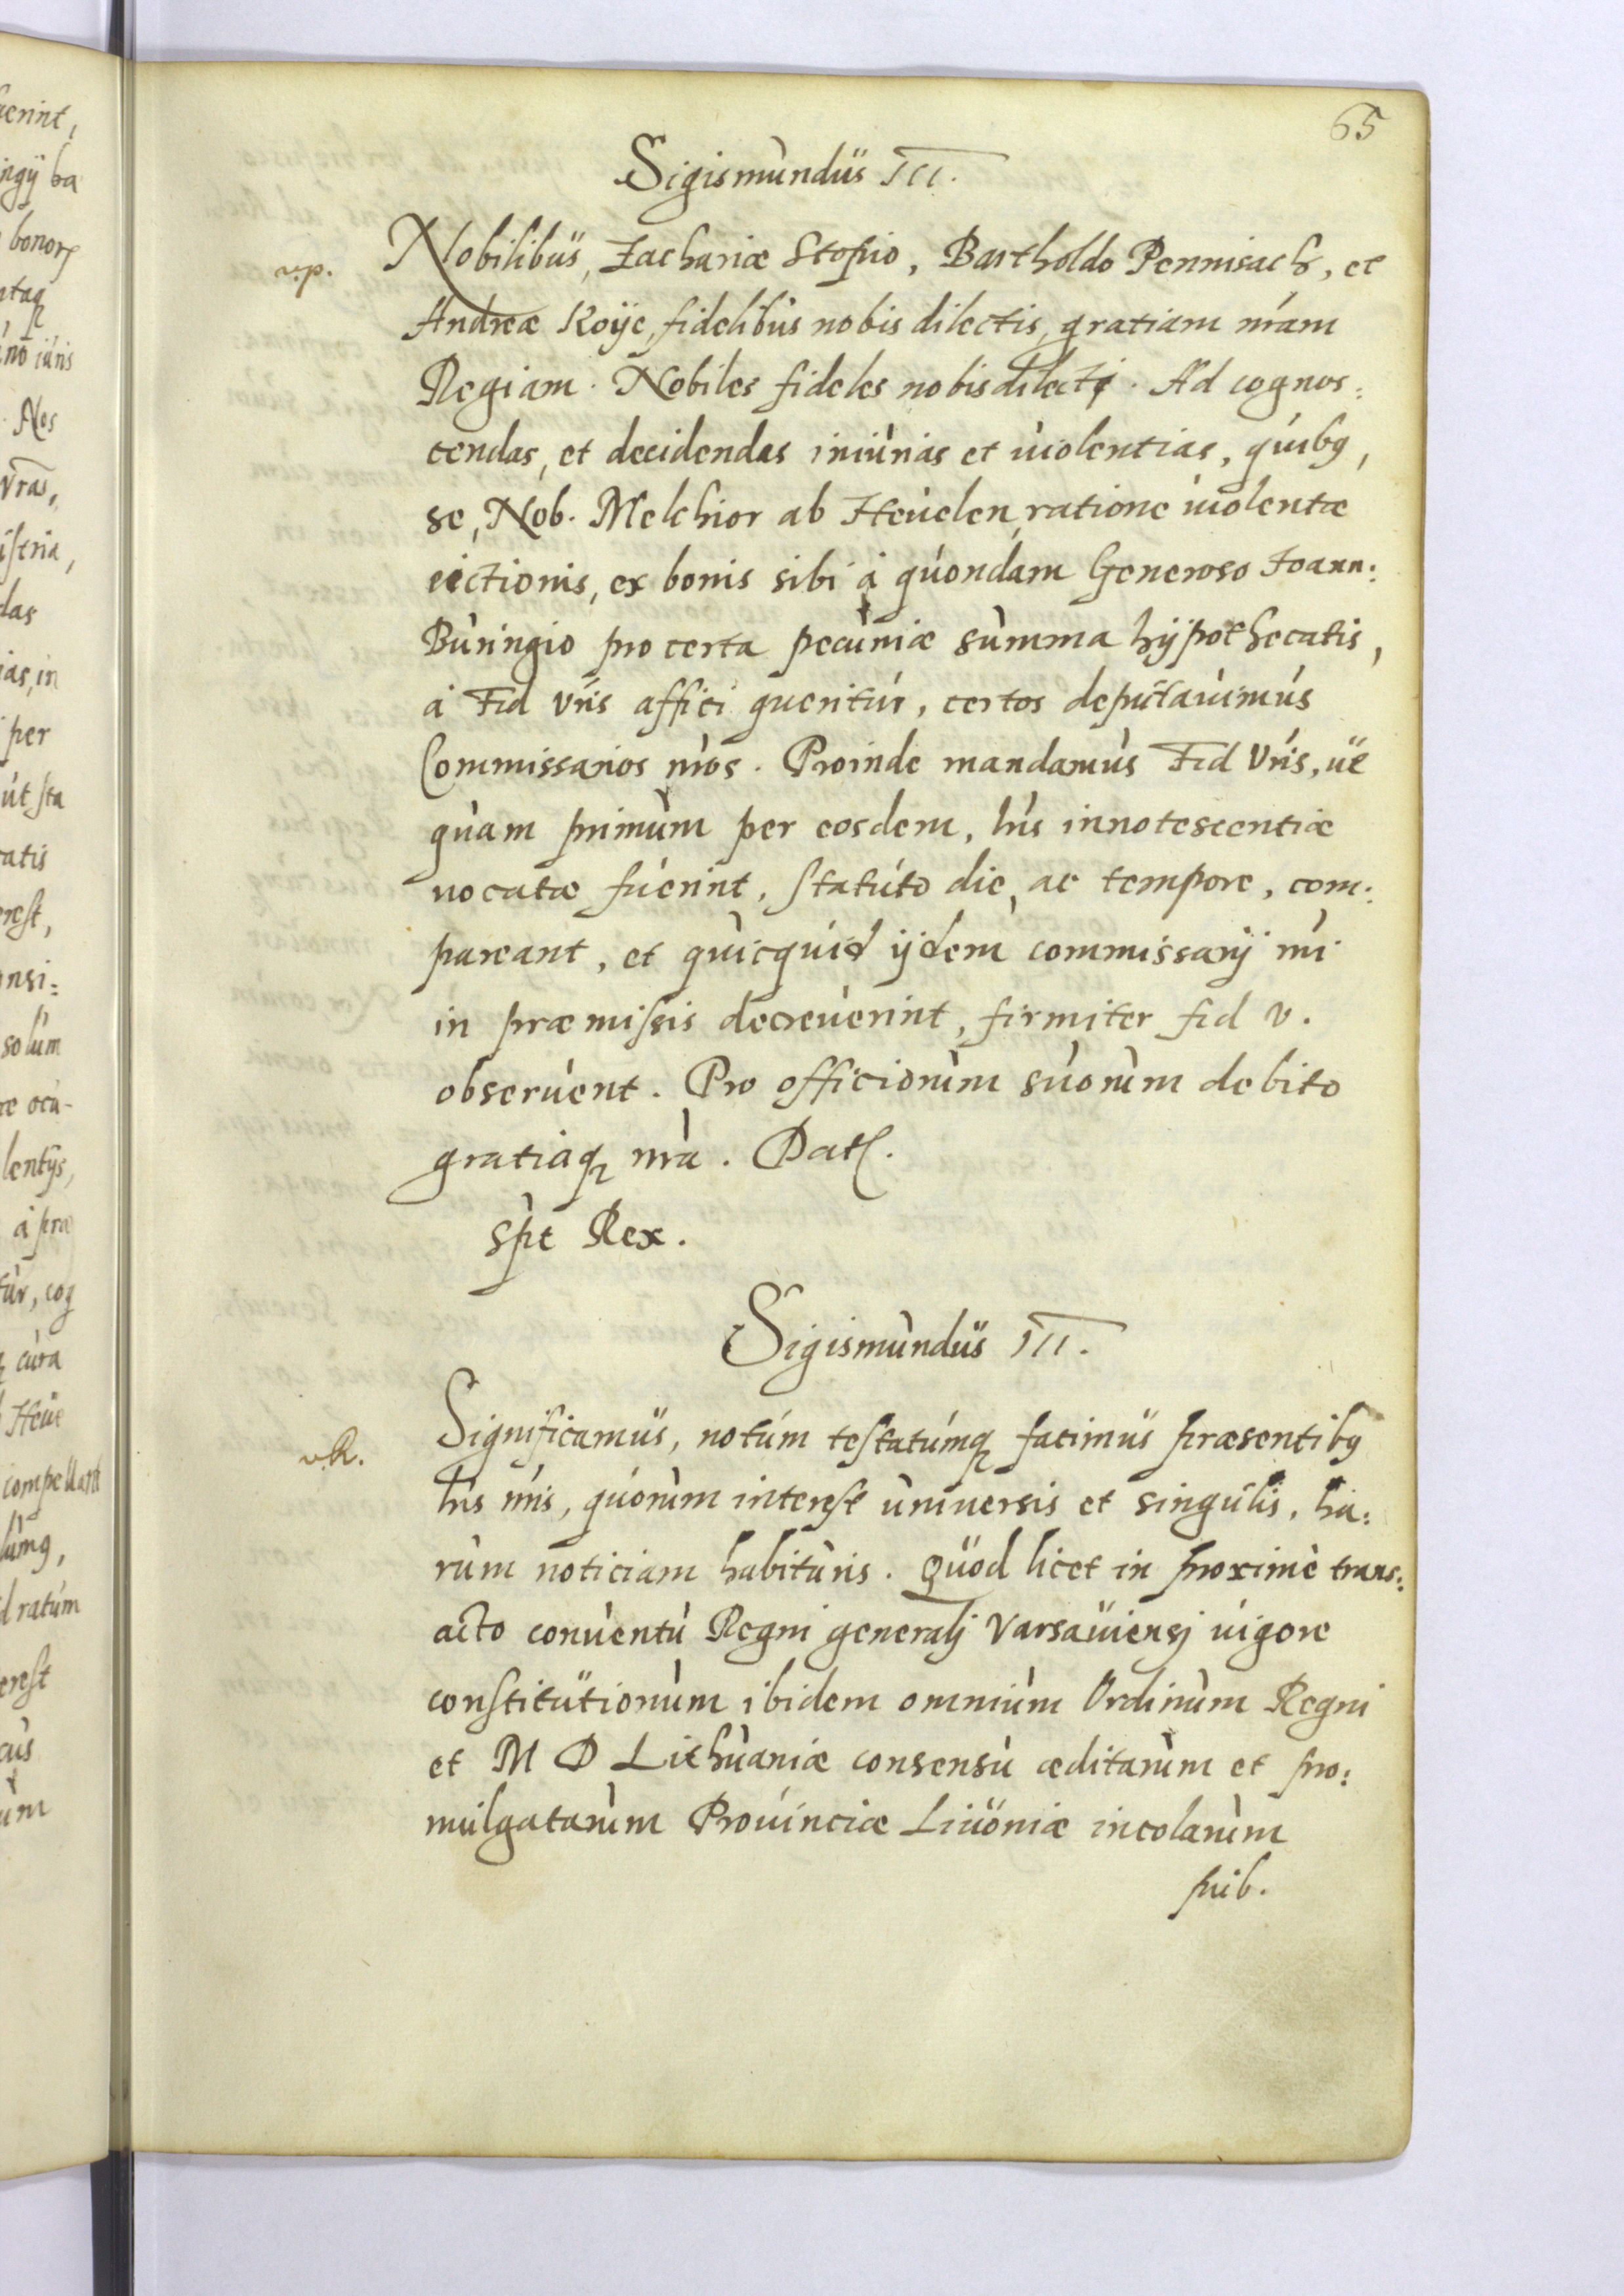 65
Sigismundus III.
v.p. Nobilibus, Zachariæ Stopio, Bartholdo Pennisach, et
Andreæ Koÿe, fidelibus nobis dilectis, gratiam nr̃am
Regiam. Nobiles fideles nobis dilecti. Ad cognos:
cendas, et decidendas iniurias et uiolentias, quibꝰ,
se, Nob. Melchior ab Heuelen, ratione uiolentæ
eiectionis, ex bonis sibi à quondam Generoso Joann:
Buringio pro certa pecuniæ summa hÿpothecatis,
à Fid Vr̃is affici queritur, certos deputauimus
Commissarios nr̃os. Proinde mandamus Fid Vr̃is, ut
quam primum per eosdem, lr̃is innotescentiæ
uocatæ fuerint, statuto die, ac tempore, com:
pareant, et quicquid ijdem commissarij nr̃i
in præmissis decreuerint, firmiter fid v.
obseruent. Pro officiorum suorum debito
gratiaqꝫ nr̃a. Dat.
spt Rex.
Sigismundus III.
v.R. Significamus, notum testatumqꝫ facimus præsentibꝰ
lr̃is nr̃is, quorum interest uniuersis et singulis, ha:
rum noticiam habituris. Quod licet in proximè trans:
acto conuentu Regni generalj Varsauiensj uigore
constitutionum ibidem omnium Ordinum Regni
et M D Lithuaniæ consensu æditarum et pro:
mulgatarum Prouinciæ Liuoniæ incolarum
pub.